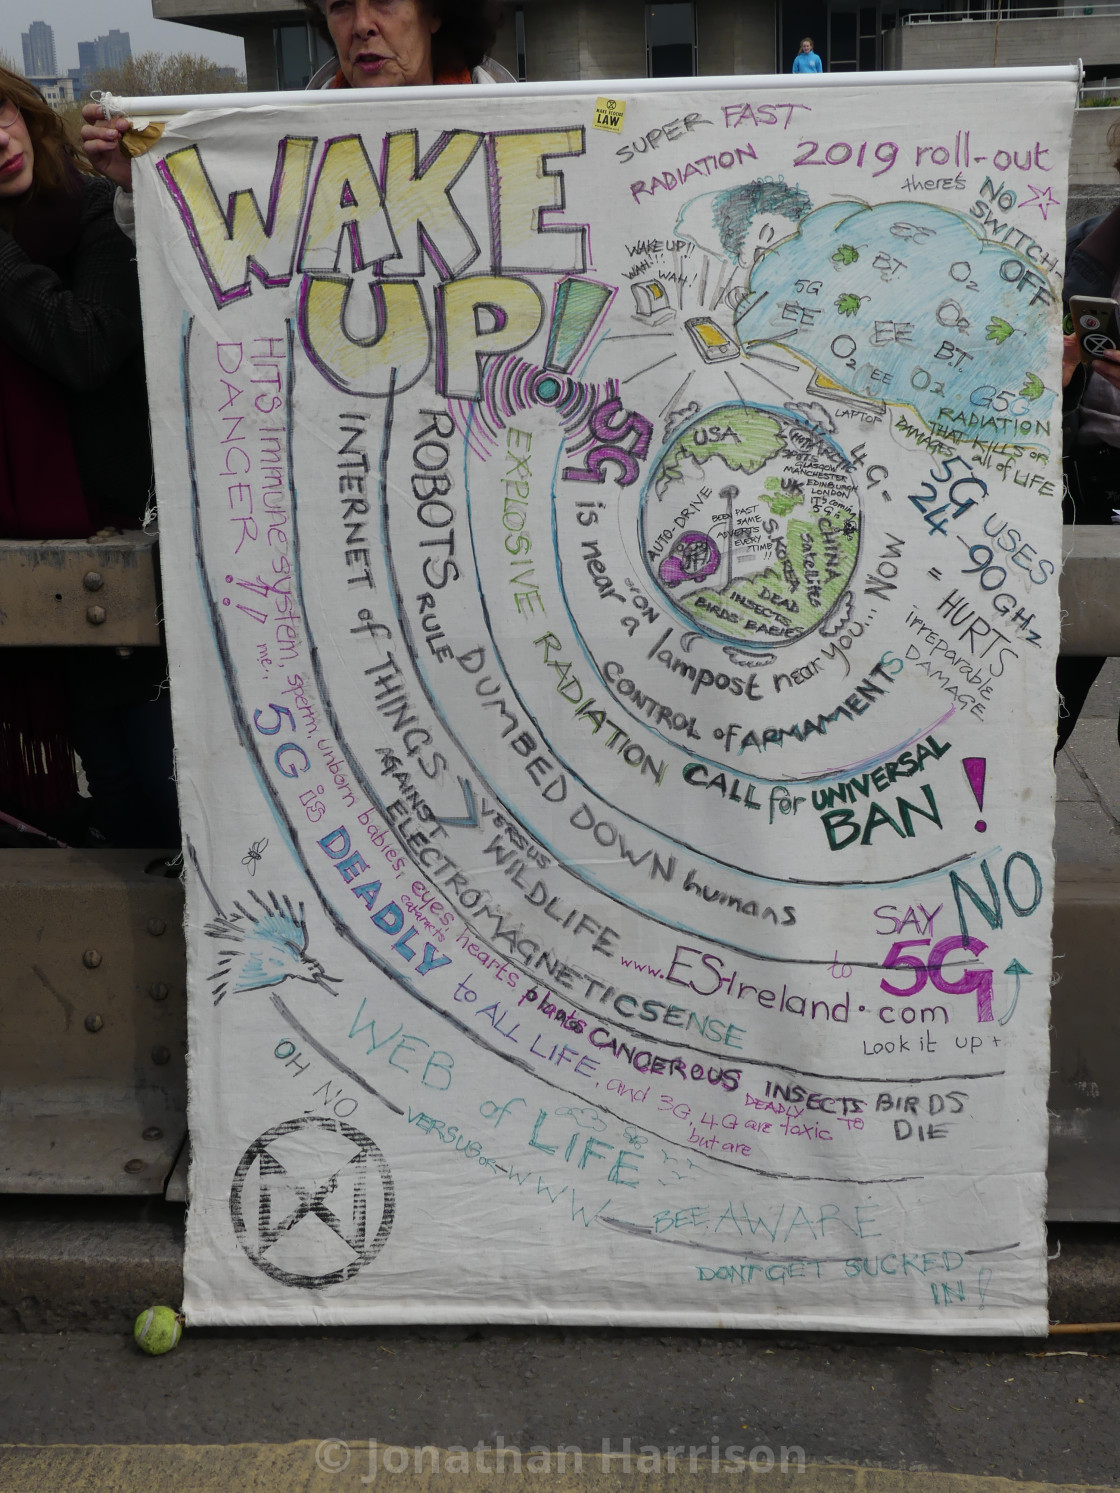 WAKE
UP!
LAW
SUPER FAST
RADIATION
2019 roll-out
there's NO
SWITCH
OFF
WAKE UP!!
WAH!!!
WAH!
BT.
O2
5G
EE
O2
EE
O2
EE
BT.
O2
5G
LAPTOP
RADIATION
THAT KILLS OR
DAMAGES all of LIFE
5G USES
24-90GHz
= HURTS
irreparable
DAMAGE
4G - NOW
USA
GLASGOW
MANCHESTER
EDINBURGH
UK
LONDON
IT'S coming
5G
CHINA
SATELLITES
AUTO-DRIVE
BEEN PAST
SAME
ADVERTS
EVERY
TIME!!
DEAD
INSECTS
BIRDS BABIES
5G is near
"ON a lampost near you...
CONTROL of ARMAMENTS
EXPLOSIVE RADIATION CALL for UNIVERSAL
BAN!
ROBOTS RULE
DUMBED DOWN humans
INTERNET of THINGS
VERSUS
WILDLIFE
AGAINST
ELECTROMAGNETICSENSE
www.ES-Ireland.com
SAY NO
to 5G
Look it up +
HITS immune system, sperm, unborn babies, eyes, hearts, plants CANCEROUS INSECTS BIRDS
cataracts
DIE
DANGER!!
me..
5G is DEADLY to ALL LIFE. and 3G 4G are toxic TO
DEADLY
but are
WEB of LIFE
VERSUS or - WWW
BEE AWARE
DONT GET SUCKED
IN!
OH NO
© Jonathan Harrison